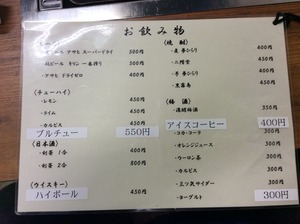 お飲み物
ビール アサヒ スーパードライ 500円
瓶ビール キリン 一番搾り 500円
アサヒ ドライゼロ 400円
(チューハイ)
レモン 450円
ライム 450円
カルピス 450円
ブルチュー 550円
(日本酒)
剣菱 1合 400円
剣菱 2合 800円
(ウイスキー)
ハイボール 450円
(焼酎)
麦 夢ひらり 400円
二階堂 450円
芋 夢ひらり 400円
黒霧島 450円
(梅酒)
濃醇梅酒 350円
アイスコーヒー 400円
コカ・コーラ 300円
オレンジジュース 300円
ウーロン茶 300円
カルピス 300円
三ツ矢サイダー 300円
ヨーグルト 300円